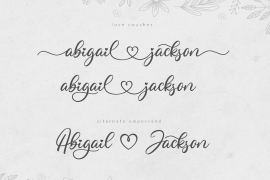 love swashes
abigail jackson
abigail jackson
alternate ampersand
Abigail Jackson